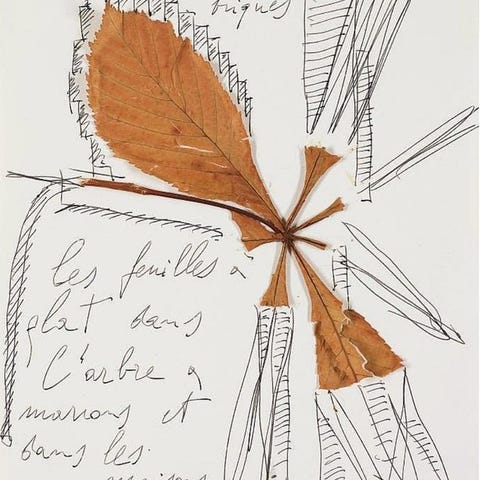 briques
les feuilles à
plat dans
l'arbre à
marrons et
dans les